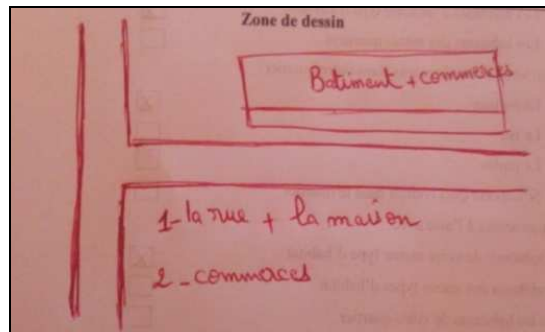 Zone de dessin
Batiment + commerces
1- la rue + la maison
2 - commerces